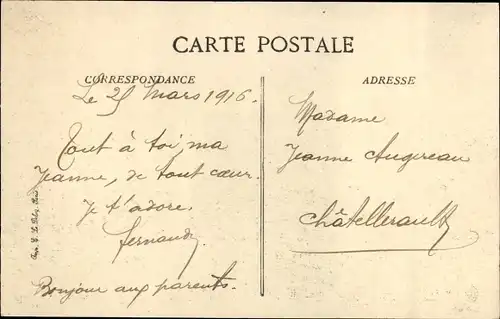 CARTE POSTALE
CORRESPONDANCE
Le 25 Mars 1916.
Tout à toi, ma
Jeanne, de tout cœur.
Je t'adore.
Fernand.
Bonjour aux parents.
ADRESSE
Madame
Jeanne Augereau
Châtellerault